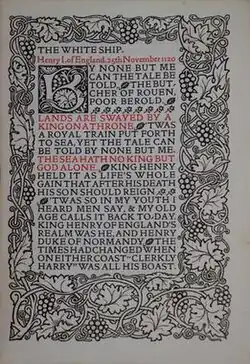 THE WHITE SHIP.
Henry I. of England. 25th November 1120
BY NONE BUT ME
CAN THE TALE BE
TOLD, THE BUT-
CHER OF ROUEN,
POOR BEROLD.
LANDS ARE SWAYED BY A
KING ON A THRONE. 'TWAS
A ROYAL TRAIN PUT FORTH
TO SEA, YET THE TALE CAN
BE TOLD BY NONE BUT ME.
THE SEA HATH NO KING BUT
GOD ALONE. KING HENRY
HELD IT AS LIFE'S WHOLE
GAIN THAT AFTER HIS DEATH
HIS SON SHOULD REIGN.
'TWAS SO IN MY YOUTH I
HEARD MEN SAY, & MY OLD
AGE CALLS IT BACK TO-DAY.
KING HENRY OF ENGLAND'S
REALM WAS HE, AND HENRY
DUKE OF NORMANDY. THE
TIMES HAD CHANGED WHEN
ON EITHER COAST "CLERKLY
HARRY" WAS ALL HIS BOAST.